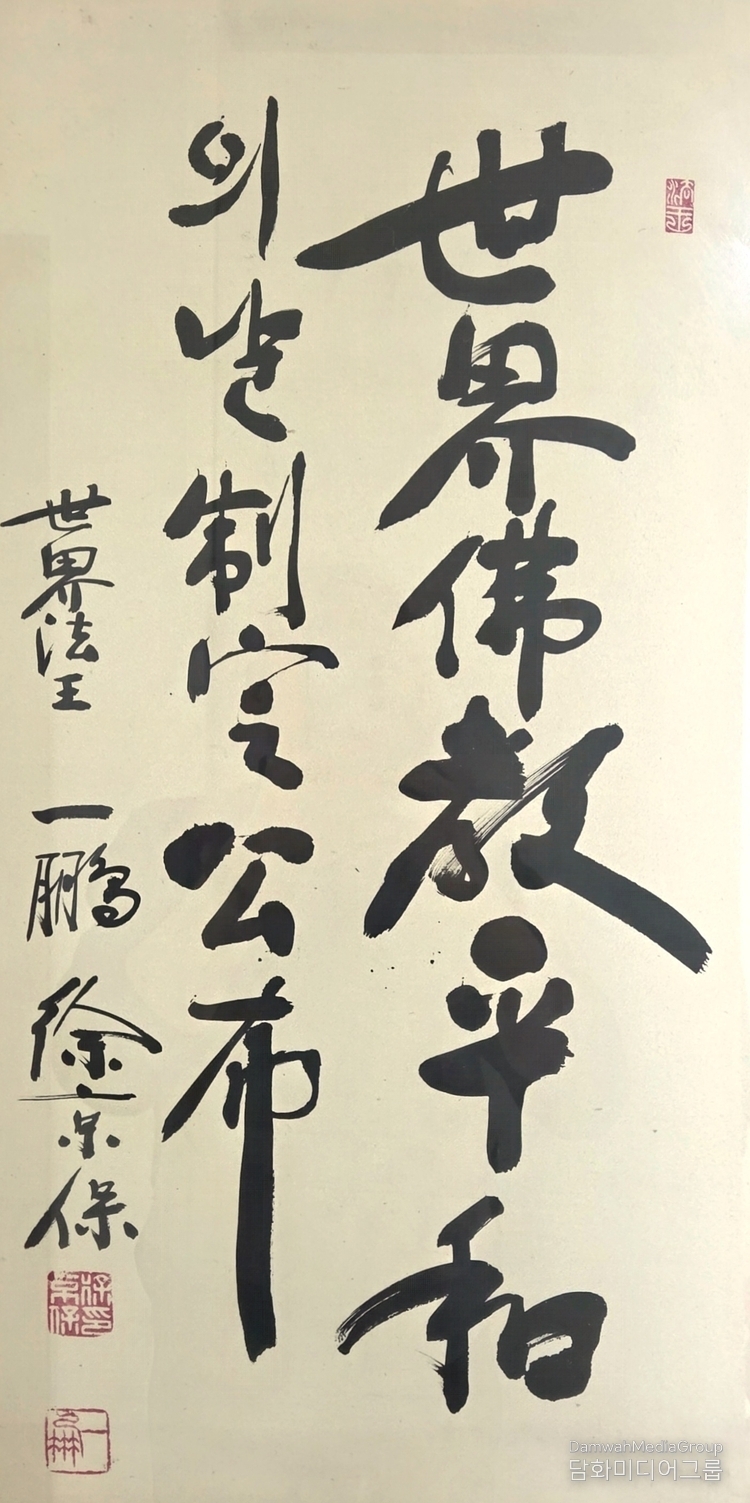 世界佛敎平和
의날制定公布
世界法王
一鵬 徐京保
DamwhaMediaGroup
담화미디어그룹